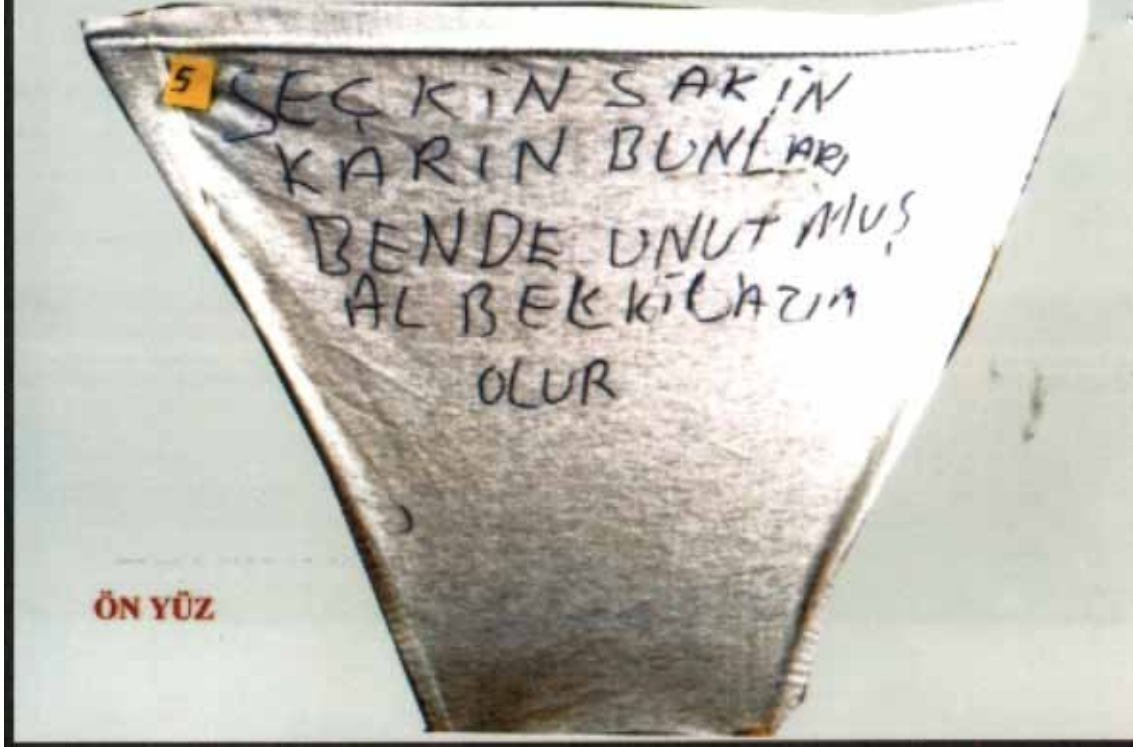 5
SEÇKİN SAKİN
KARIN BUNLARI
BENDE UNUTMUŞ
AL BELKİ LAZIM
OLUR
ÖN YÜZ